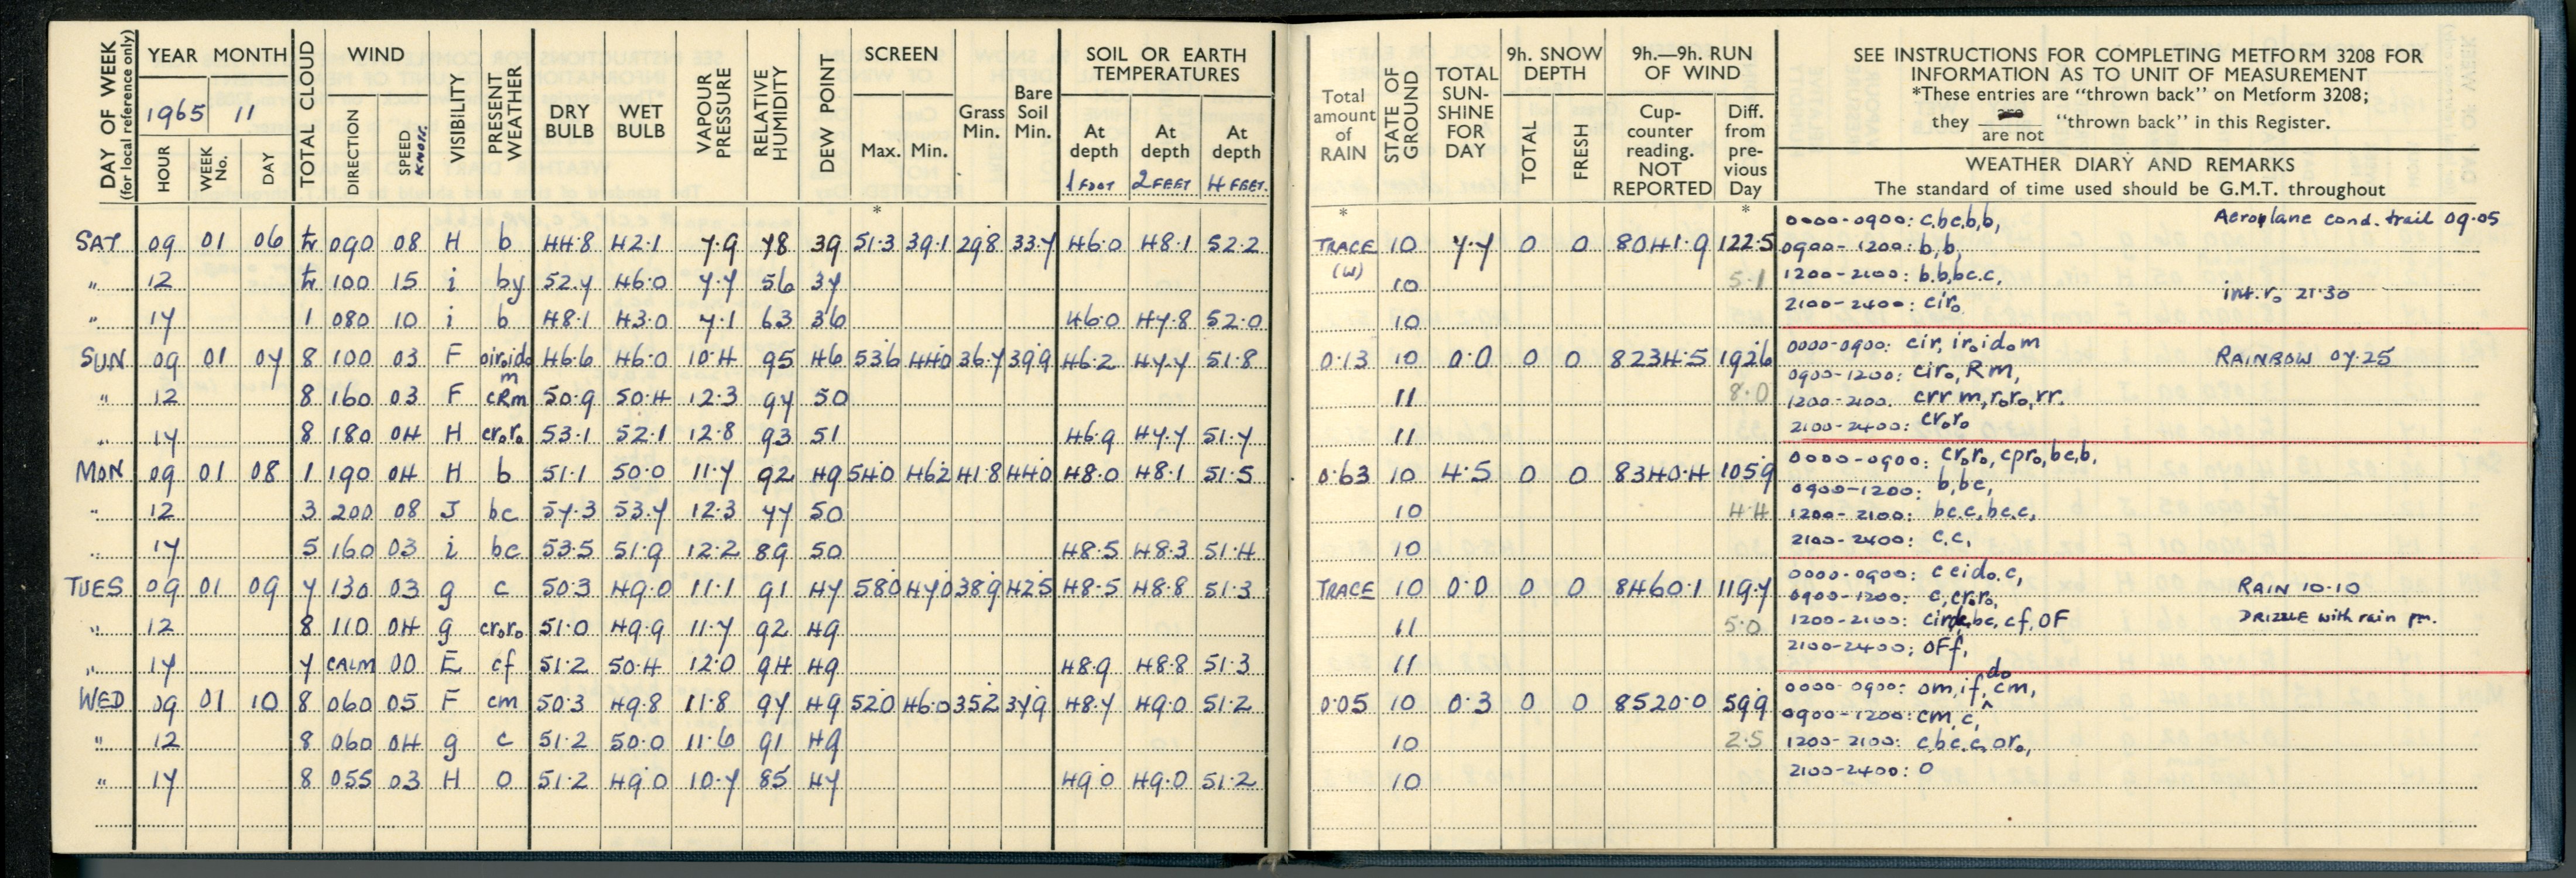 DAY OF WEEK
(for local reference only)
YEAR MONTH
1965 11
HOUR
WEEK No.
DAY
TOTAL CLOUD
WIND
DIRECTION
SPEED KNOTS.
VISIBILITY
PRESENT WEATHER
DRY BULB
WET BULB
VAPOUR PRESSURE
RELATIVE HUMIDITY
DEW POINT
SCREEN
Max. Min.
*
Grass Min.
Bare Soil Min.
SOIL OR EARTH TEMPERATURES
At depth 1 FOOT
At depth 2 FEET
At depth 4 FEET.
Total amount of RAIN
*
STATE OF GROUND
TOTAL SUN-SHINE FOR DAY
9h. SNOW DEPTH
TOTAL
FRESH
9h.—9h. RUN OF WIND
Cup-counter reading. NOT REPORTED
Diff. from pre-vious Day
*
SEE INSTRUCTIONS FOR COMPLETING METFORM 3208 FOR
INFORMATION AS TO UNIT OF MEASUREMENT
*These entries are "thrown back" on Metform 3208;
they are / are not "thrown back" in this Register.
WEATHER DIARY AND REMARKS
The standard of time used should be G.M.T. throughout
SAT 09 01 06 tr 090 08 H b 44.8 42.1 7.9 78 39 51.3 39.1 29.8 33.7 46.0 48.1 52.2 TRACE (W) 10 7.7 0 0 8041.9 122.5
0000-0900: c,bc,b,b, Aeroplane cond. trail 09.05
0900-1200: b,b,
" 12 tr 100 15 i by 52.7 46.0 7.7 56 37 10 5.1
1200-2100: b.b,bc.c,
int.r₀ 21.30
2100-2400: cir₀
" 17 1 080 10 i b 48.1 43.0 7.1 63 36 46.0 47.8 52.0 10
SUN 09 01 07 8 100 03 F oir₀id₀m 46.6 46.0 10.4 95 46 53.6 44.0 36.7 39.9 46.2 47.7 51.8 0.13 10 0.0 0 0 8234.5 192.6
0000-0900: cir, ir₀id₀m RAINBOW 07.25
0900-1200: cir₀, Rm,
" 12 8 160 03 F cRm 50.9 50.4 12.3 97 50 11 8.0
1200-2100. crr m,r₀r₀,rr.
2100-2400: cr₀r₀
" 17 8 180 04 H cr₀r₀ 53.1 52.1 12.8 93 51 46.9 47.7 51.7 11
MON 09 01 08 1 190 04 H b 51.1 50.0 11.7 92 49 54.0 46.2 41.8 44.0 48.0 48.1 51.5 0.63 10 4.5 0 0 8340.4 105.9
0000-0900: cr₀r₀, cpr₀, bc, b,
0900-1200: b,bc,
" 12 3 200 08 J bc 57.3 53.7 12.3 77 50 10 4.4
1200-2100: bc.c,bc.c,
" 17 5 160 03 i bc 53.5 51.9 12.2 89 50 48.5 48.3 51.4 10
2100-2400: c.c,
TUES 09 01 09 7 130 03 g c 50.3 49.0 11.1 91 47 58.0 47.0 38.9 42.5 48.5 48.8 51.3 TRACE 10 0.0 0 0 8460.1 119.7
0000-0900: c cid₀.c, RAIN 10.10
0900-1200: c,cr₀r₀,
" 12 8 110 04 g cr₀r₀ 51.0 49.9 11.7 92 49 11 5.0
1200-2100: bc, cf, OF DRIZZLE with rain pm.
2100-2400: OFf,
" 17 7 CALM 00 E cf 51.2 50.4 12.0 94 49 48.9 48.8 51.3 11
WED 09 01 10 8 060 05 F cm 50.3 49.8 11.8 97 49 52.0 46.0 35.2 37.9 48.7 49.0 51.2 0.05 10 0.3 0 0 8520.0 59.9
0000-0900: om,if, d₀ cm,
0900-1200: cm, c,
" 12 8 060 04 g c 51.2 50.0 11.6 91 49 10 2.5
1200-2100: c,bc.c, or₀,
" 17 8 055 03 H O 51.2 49.0 10.7 85 47 49.0 49.0 51.2 10
2100-2400: O